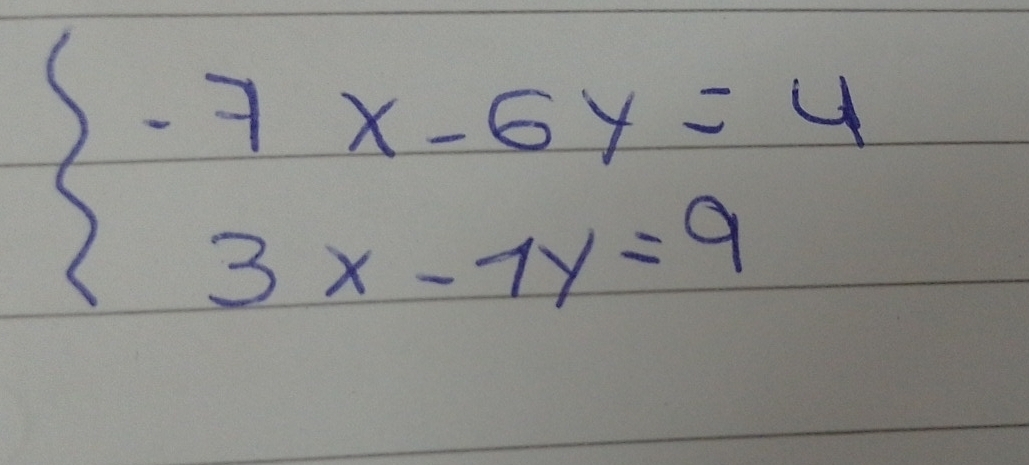 -7x-6y=4
3x-1y=9